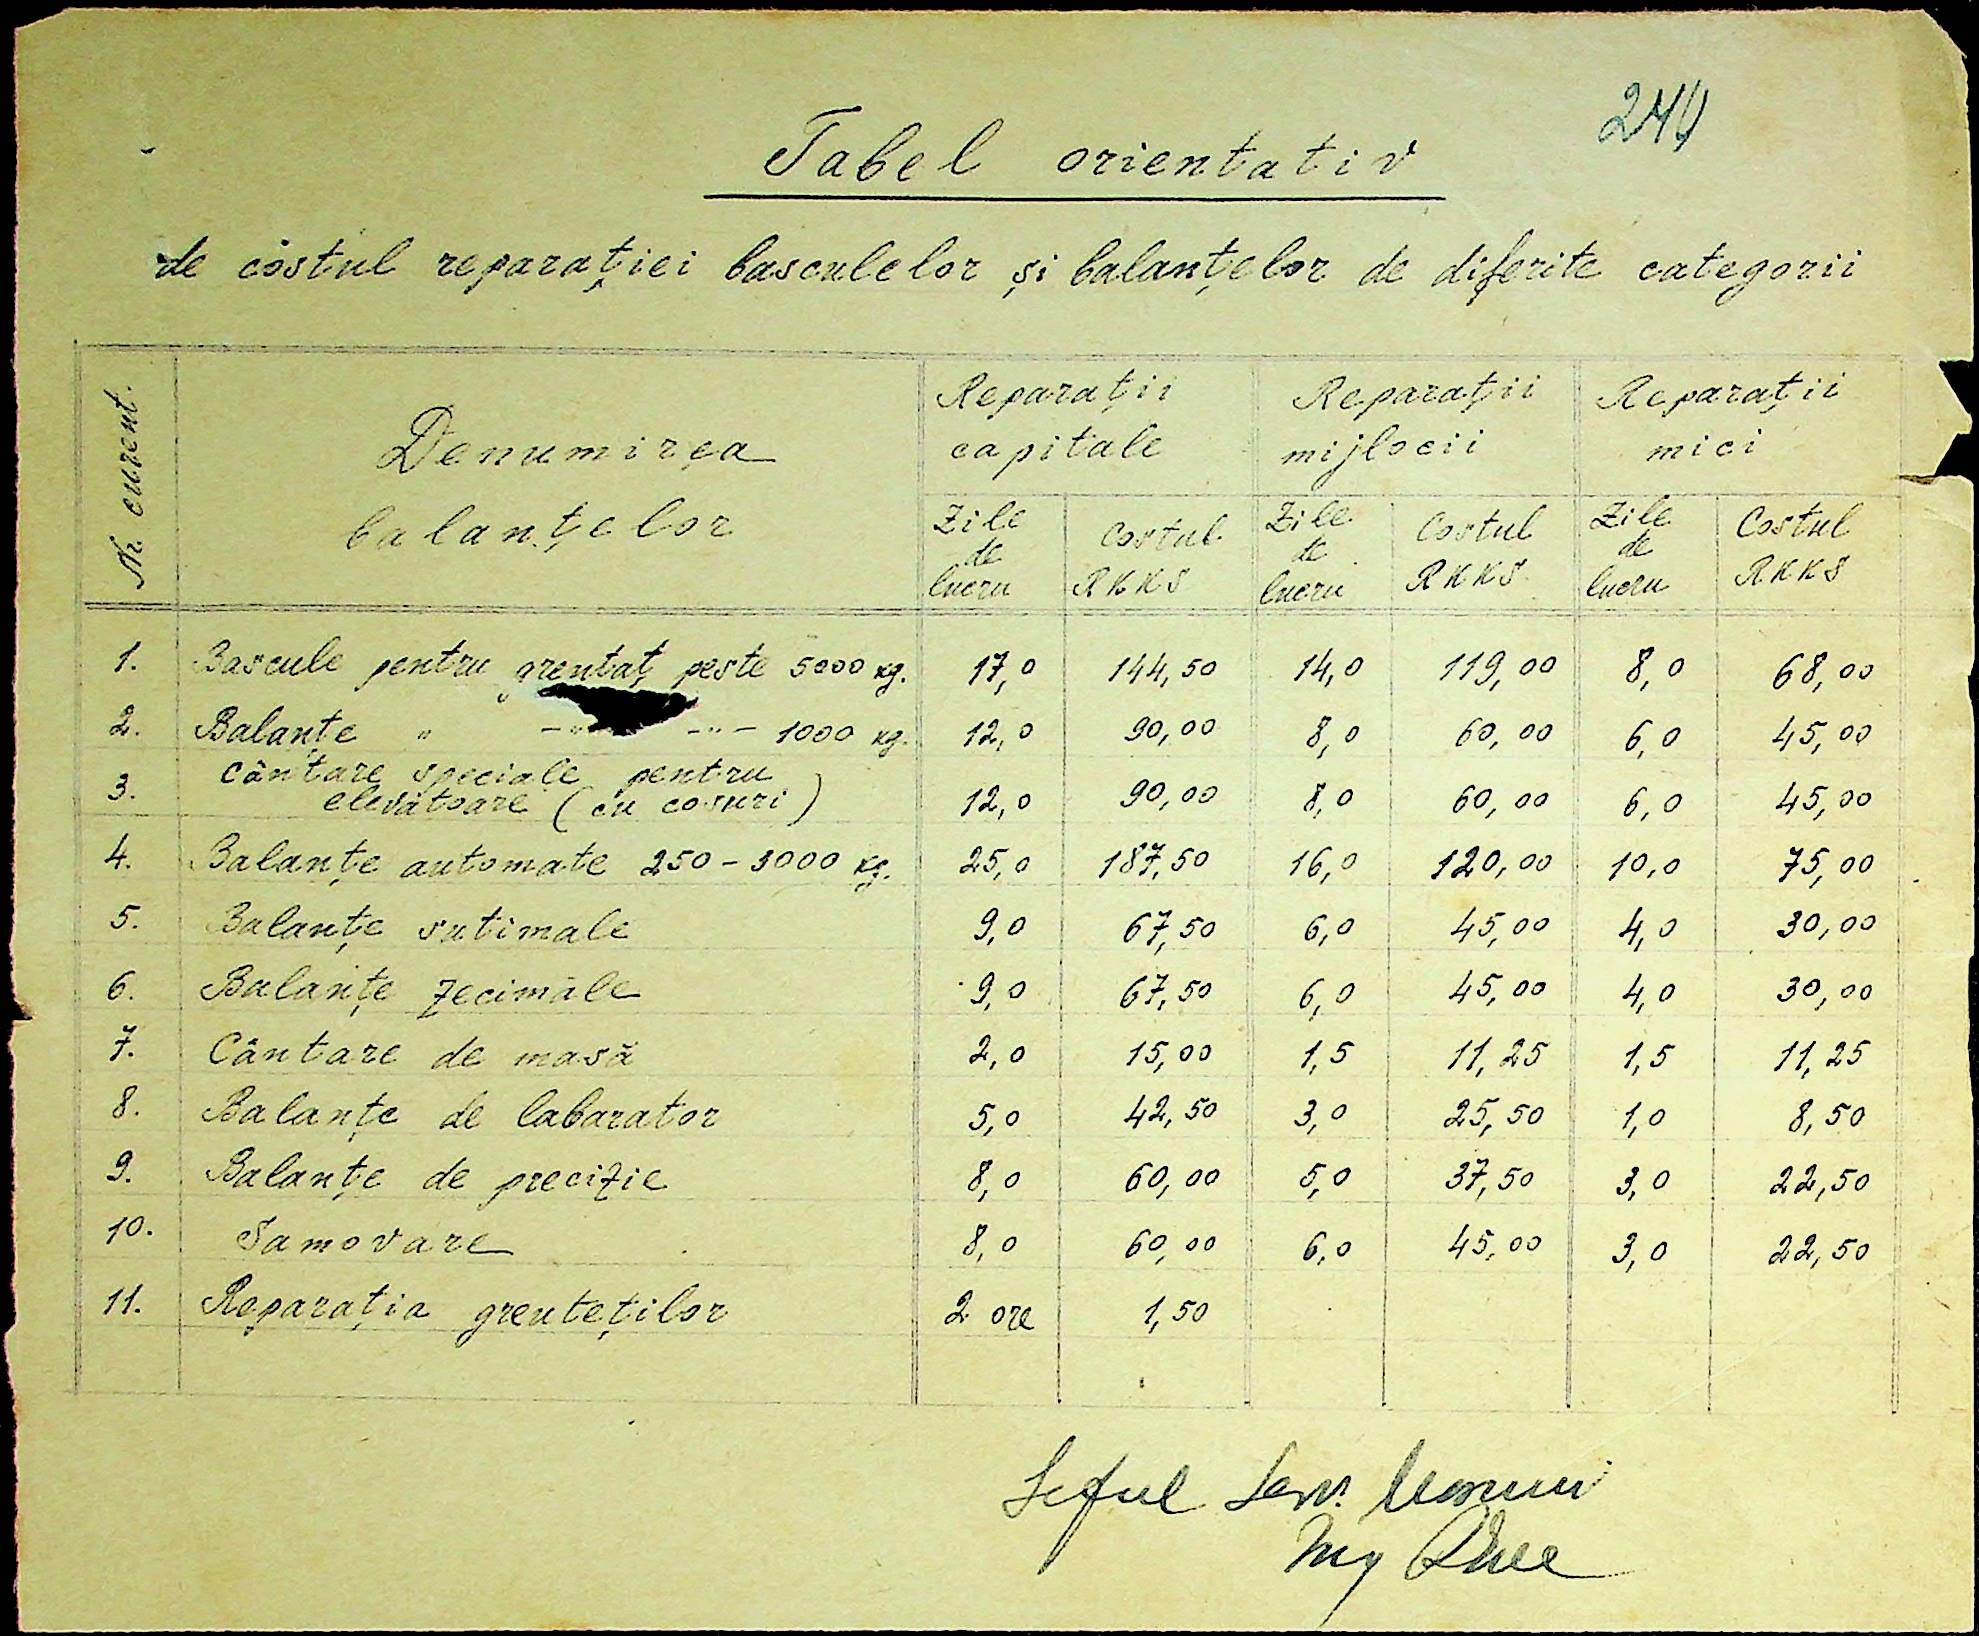 240
Tabel orientativ
de costul reparației basculelor și balanțelor de diferite categorii
Nr. curent.
Denumirea
balanțelor
Reparații
capitale
Reparații
mijlocii
Reparații
mici
Zile
de
lucru
Costul
RKKS
Zile
de
lucru
Costul
RKKS
Zile
de
lucru
Costul
RKKS
1. Bascule pentru greutăț peste 5000 kg. 17,0 144,50 14,0 119,00 8,0 68,00
2. Balanțe " -"- -"- 1000 kg. 12,0 90,00 8,0 60,00 6,0 45,00
3. Cântare speciale pentru
elevatoare (cu cosuri) 12,0 90,00 8,0 60,00 6,0 45,00
4. Balanțe automate 250-3000 kg. 25,0 187,50 16,0 120,00 10,0 75,00
5. Balanțe sutimale 9,0 67,50 6,0 45,00 4,0 30,00
6. Balanțe zecimale 9,0 67,50 6,0 45,00 4,0 30,00
7. Cântare de masă 2,0 15,00 1,5 11,25 1,5 11,25
8. Balanțe de labarator 5,0 42,50 3,0 25,50 1,0 8,50
9. Balanțe de precizie 8,0 60,00 5,0 37,50 3,0 22,50
10. Samovare 8,0 60,00 6,0 45,00 3,0 22,50
11. Reparația greuteților 2 ore 1,50
Seful Serv.
Ing